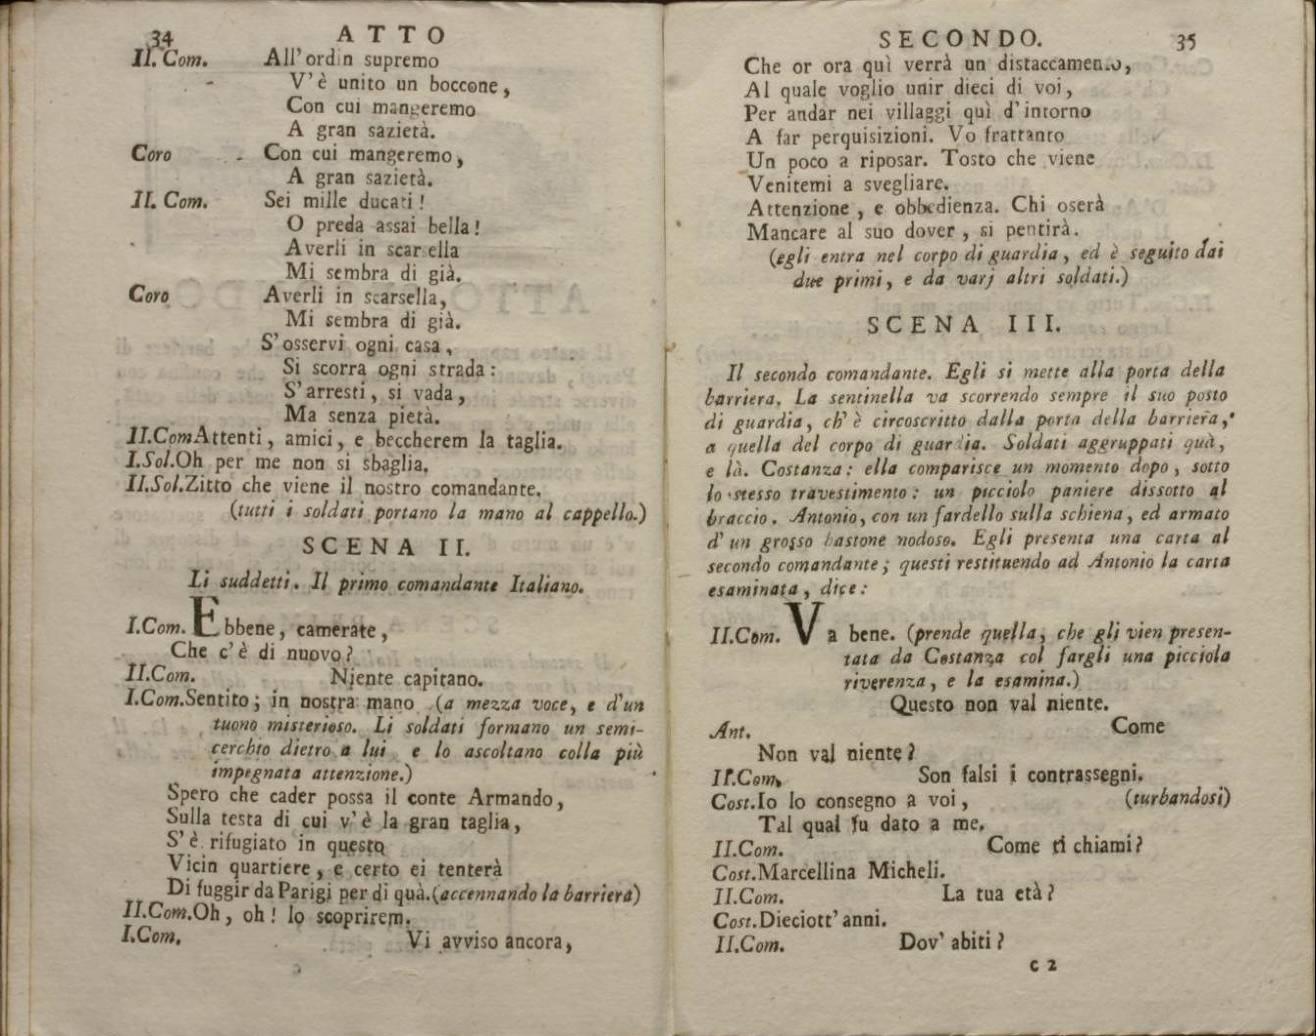 34 ATTO
II. Com. All' ordin supremo
V' è unito un boccone,
Con cui mangeremo
A gran sazietà.
Coro Con cui mangeremo,
A gran sazietà.
II. Com. Sei mille ducati!
O preda assai bella!
Averli in scarsella
Mi sembra di già.
Coro Averli in scarsella,
Mi sembra di già.
S' osservi ogni casa,
Si scorra ogni strada:
S' arresti, si vada,
Ma senza pietà.
II.Com Attenti, amici, e beccherem la taglia.
I.Sol. Oh per me non si sbaglia.
II.Sol. Zitto che viene il nostro comandante.
(tutti i soldati portano la mano al cappello.)
SCENA II.
Li suddetti. Il primo comandante Italiano.
I.Com. Ebbene, camerate,
Che c' è di nuovo?
II.Com. Niente capitano.
I.Com. Sentito; in nostra mano (a mezza voce, e d'un
tuono misterioso. Li soldati formano un semi-
cerchio dietro a lui e lo ascoltano colla più
impegnata attenzione.)
Spero che cader possa il conte Armando,
Sulla testa di cui v' è la gran taglia,
S' è rifugiato in questo
Vicin quartiere, e certo ei tenterà
Di fuggir da Parigi per di quà. (accennando la barriera)
II.Com. Oh, oh! lo scoprirem.
I.Com. Vi avviso ancora,
SECONDO. 35
Che or ora quì verrà un distaccamento,
Al quale voglio unir dieci di voi,
Per andar nei villaggi quì d' intorno
A far perquisizioni. Vo frattanto
Un poco a riposar. Tosto che viene
Venitemi a svegliare.
Attenzione, e obbedienza. Chi oserà
Mancare al suo dover, si pentirà.
(egli entra nel corpo di guardia, ed è seguito dai
due primi, e da varj altri soldati.)
SCENA III.
Il secondo comandante. Egli si mette alla porta della
barriera. La sentinella va scorrendo sempre il suo posto
di guardia, ch' è circoscritto dalla porta della barriera,
a quella del corpo di guardia. Soldati aggruppati quà,
e là. Costanza: ella comparisce un momento dopo, sotto
lo stesso travestimento: un picciolo paniere dissotto al
braccio. Antonio, con un fardello sulla schiena, ed armato
d' un grosso bastone nodoso. Egli presenta una carta al
secondo comandante; questi restituendo ad Antonio la carta
esaminata, dice:
II.Com. Va bene. (prende quella, che gli vien presen-
tata da Costanza col fargli una picciola
riverenza, e la esamina.)
Questo non val niente.
Ant. Come
Non val niente?
II.Com. Son falsi i contrassegni.
Cost. Io lo consegno a voi, (turbandosi)
Tal qual fu dato a me.
II.Com. Come ti chiami?
Cost. Marcellina Micheli.
II.Com. La tua età?
Cost. Dieciott' anni.
II.Com. Dov' abiti?
C 2